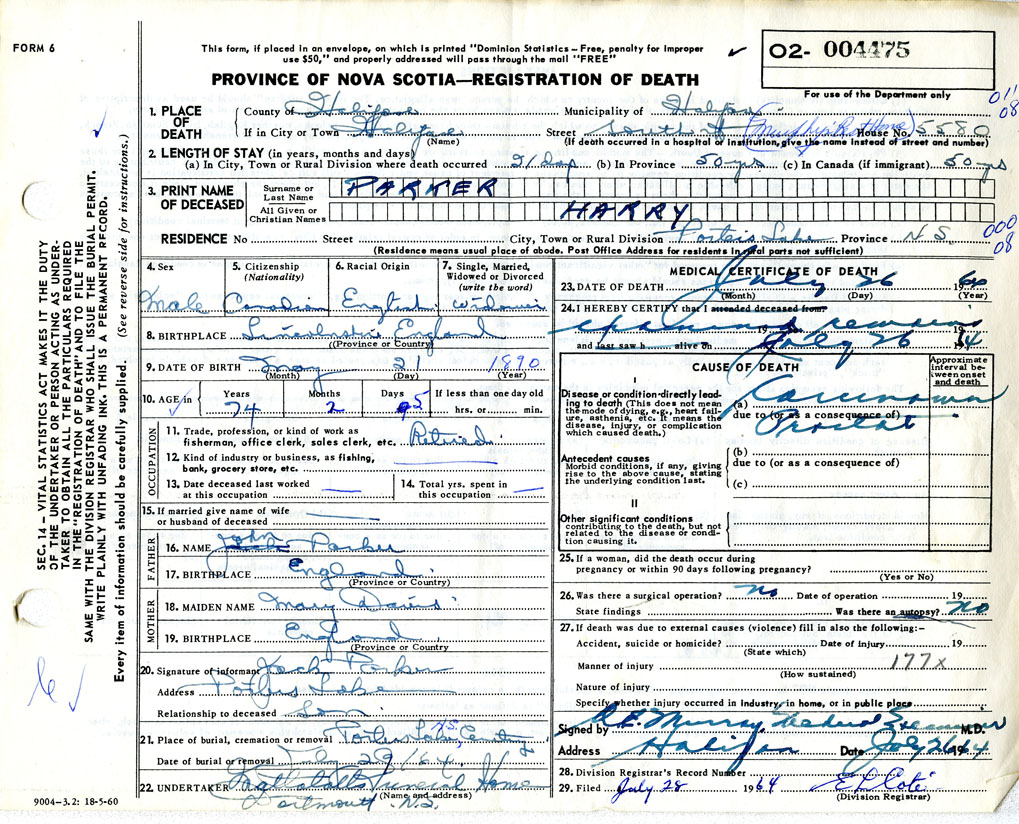 FORM 6
This form, if placed in an envelope, on which is printed "Dominion Statistics – Free, penalty for improper
use $50," and properly addressed will pass through the mail "FREE"
✓
O2- 004475
For use of the Department only
PROVINCE OF NOVA SCOTIA—REGISTRATION OF DEATH
011
08
1. PLACE OF DEATH
County of Halifax Municipality of Halifax
If in City or Town Halifax Street South St House No. 5580
(Name) (If death occurred in a hospital or institution, give the name instead of street and number)
2. LENGTH OF STAY (in years, months and days)
(a) In City, Town or Rural Division where death occurred 21 Days (b) In Province 50 yrs (c) In Canada (if immigrant) 50 yrs
3. PRINT NAME OF DECEASED
Surname or Last Name PARKER
All Given or Christian Names HARRY
000
08
RESIDENCE No. Street City, Town or Rural Division Porters Lake Province N.S.
(Residence means usual place of abode. Post Office Address for residents in rural parts not sufficient)
4. Sex
Male
5. Citizenship
(Nationality)
Canadian
6. Racial Origin
English
7. Single, Married, Widowed or Divorced
(write the word)
Widower
8. BIRTHPLACE England
(Province or Country)
9. DATE OF BIRTH May 21 1890
(Month) (Day) (Year)
10. AGE in Years Months Days If less than one day old
74 2 5 hrs. or min.
OCCUPATION
11. Trade, profession, or kind of work as
fisherman, office clerk, sales clerk, etc. Retired
12. Kind of industry or business, as fishing,
bank, grocery store, etc.
13. Date deceased last worked
at this occupation
14. Total yrs. spent in
this occupation
15. If married give name of wife
or husband of deceased
FATHER
16. NAME John Parker
17. BIRTHPLACE England
(Province or Country)
MOTHER
18. MAIDEN NAME Mary Davis
19. BIRTHPLACE England
(Province or Country)
20. Signature of informant Jack Parker
Address Porters Lake
Relationship to deceased Son
21. Place of burial, cremation or removal Porters Lake, N.S. Cemetery
Date of burial or removal July 29/64
22. UNDERTAKER Funeral Home
(Name and address)
Dartmouth N.S.
9004—3.2: 18-5-60
MEDICAL CERTIFICATE OF DEATH
23. DATE OF DEATH July 26 1964
(Month) (Day) (Year)
24. I HEREBY CERTIFY that I attended deceased from
examined remains
19 19
and last saw h alive on July 26 1964
CAUSE OF DEATH
Approximate interval between onset and death
I
Disease or condition directly leading to death (This does not mean the mode of dying, e.g., heart failure, asthenia, etc. It means the disease, injury, or complication which caused death.)
(a) Carcinoma
due to (or as a consequence of)
Prostat
Antecedent causes
Morbid conditions, if any, giving rise to the above cause, stating the underlying condition last.
(b)
due to (or as a consequence of)
(c)
II
Other significant conditions contributing to the death, but not related to the disease or condition causing it.
25. If a woman, did the death occur during
pregnancy or within 90 days following pregnancy?
(Yes or No)
26. Was there a surgical operation? No Date of operation 19
State findings Was there an autopsy? No
27. If death was due to external causes (violence) fill in also the following:–
Accident, suicide or homicide? Date of injury 19
(State which)
177x
Manner of injury
(How sustained)
Nature of injury
Specify whether injury occurred in industry, in home, or in public place
Signed by Murray Medical Examiner M.D.
Address Halifax Date July 26 1964
28. Division Registrar's Record Number
29. Filed July 28 1964
(Division Registrar)
SEC. 14 – VITAL STATISTICS ACT MAKES IT THE DUTY
OF THE UNDERTAKER OR PERSON ACTING AS UNDER-
TAKER TO OBTAIN ALL THE PARTICULARS REQUIRED
IN THE "REGISTRATION OF DEATH" AND TO FILE THE
SAME WITH THE DIVISION REGISTRAR WHO SHALL ISSUE THE BURIAL PERMIT.
WRITE PLAINLY WITH UNFADING INK. THIS IS A PERMANENT RECORD.
Every item of information should be carefully supplied. (See reverse side for instructions.)